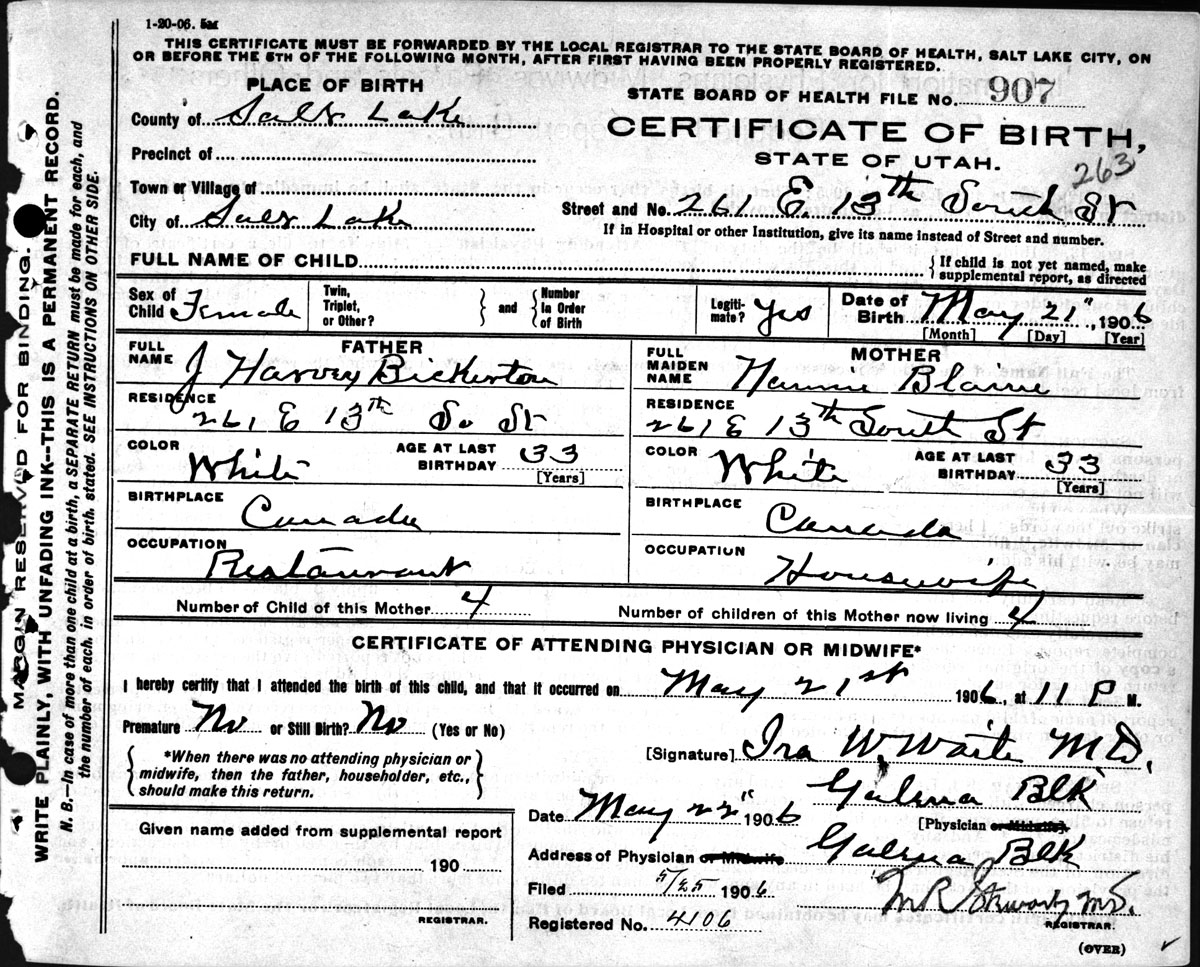 1-20-06.
THIS CERTIFICATE MUST BE FORWARDED BY THE LOCAL REGISTRAR TO THE STATE BOARD OF HEALTH, SALT LAKE CITY, ON
OR BEFORE THE 5TH OF THE FOLLOWING MONTH, AFTER FIRST HAVING BEEN PROPERLY REGISTERED.
PLACE OF BIRTH
STATE BOARD OF HEALTH FILE No. 907
County of Salt Lake
CERTIFICATE OF BIRTH,
STATE OF UTAH.
Precinct of
263
Town or Village of
Street and No. 261 E. 13th South St
City of Salt Lake
If in Hospital or other Institution, give its name instead of Street and number.
FULL NAME OF CHILD
{ If child is not yet named, make supplemental report, as directed
Sex of Child Female Twin, Triplet, or Other? } and { Number In Order of Birth Legiti-mate? Yes Date of Birth May 21", 1906
[Month] [Day] [Year]
FATHER
MOTHER
FULL NAME J Harvey Bickerton
FULL MAIDEN NAME Hennie Blaine
RESIDENCE 261 E 13th So St
RESIDENCE 261 E 13th South St
COLOR White AGE AT LAST BIRTHDAY 33 [Years]
COLOR White AGE AT LAST BIRTHDAY 33 [Years]
BIRTHPLACE Canada
BIRTHPLACE Canada
OCCUPATION Restaurant
OCCUPATION Housewife
Number of Child of this Mother 4 Number of children of this Mother now living 4
CERTIFICATE OF ATTENDING PHYSICIAN OR MIDWIFE*
I hereby certify that I attended the birth of this child, and that it occurred on May 21st 1906, at 11 P M.
Premature No or Still Birth? No (Yes or No)
{ *When there was no attending physician or midwife, then the father, householder, etc., should make this return. }
[Signature] Ira W. Waite M.D.
Galena Blk
Date May 22" 1906 [Physician or Midwife].
Given name added from supplemental report
190
REGISTRAR.
Address of Physician or Midwife Galena Blk
Filed 5/25 1906
M R Stewart, M.D.
REGISTRAR.
Registered No. 4106
(OVER)
MARGIN RESERVED FOR BINDING.
WRITE PLAINLY, WITH UNFADING INK--THIS IS A PERMANENT RECORD.
N. B.—In case of more than one child at a birth, a SEPARATE RETURN must be made for each, and
the number of each, in order of birth, stated. SEE INSTRUCTIONS ON OTHER SIDE.